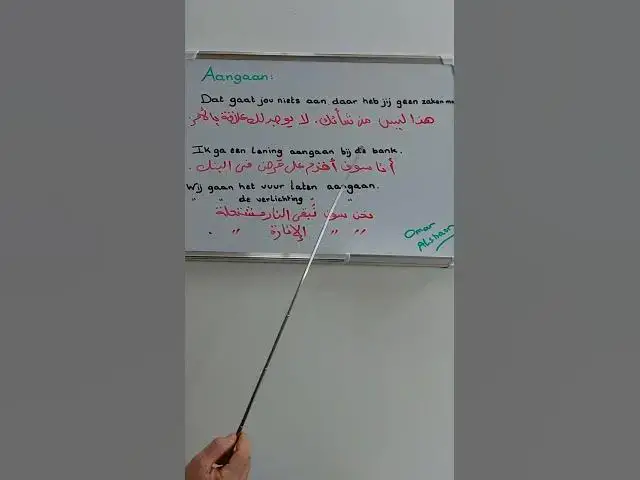 Aangaan:
Dat gaat jou niets aan daar heb jij geen zaken me
هذا ليس من شأنك. لا يوجد لك علاقة بالأمر
Ik ga een lening aangaan bij de bank.
أنا سوف أقدم على قرض في البنك.
Wij gaan het vuur laten aangaan.
" " de verlichting " "
نحن سوف نُبقي النار مشتعلة
" " " الإنارة " .
Omar